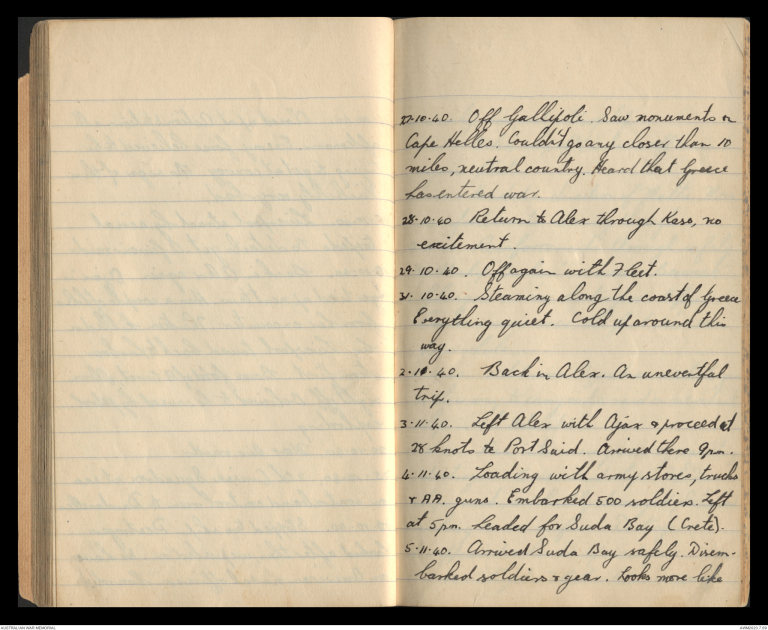 27-10-40. Off Gallipoli. Saw monuments on
Cape Helles. Couldn't go any closer than 10
miles, neutral country. Heard that Greece
has entered war.
28-10-40 Return to Alex through Kaso, no
excitement.
29.10.40. Off again with Fleet.
31.10-40. Steaming along the coast of Greece
Everything quiet. Cold up around this
way.
2.11.40. Back in Alex. An uneventful
trip.
3.11.40. Left Alex with Ajax & proceed at
28 knots to Port Said. Arrived there 9pm.
4.11.40. Loading with army stores, trucks
& AA. guns. Embarked 500 soldiers. Left
at 5pm. headed for Suda Bay (Crete).
5.11.40. Arrived Suda Bay safely. Disem-
barked soldiers & gear. Looks more like
AUSTRALIAN WAR MEMORIAL